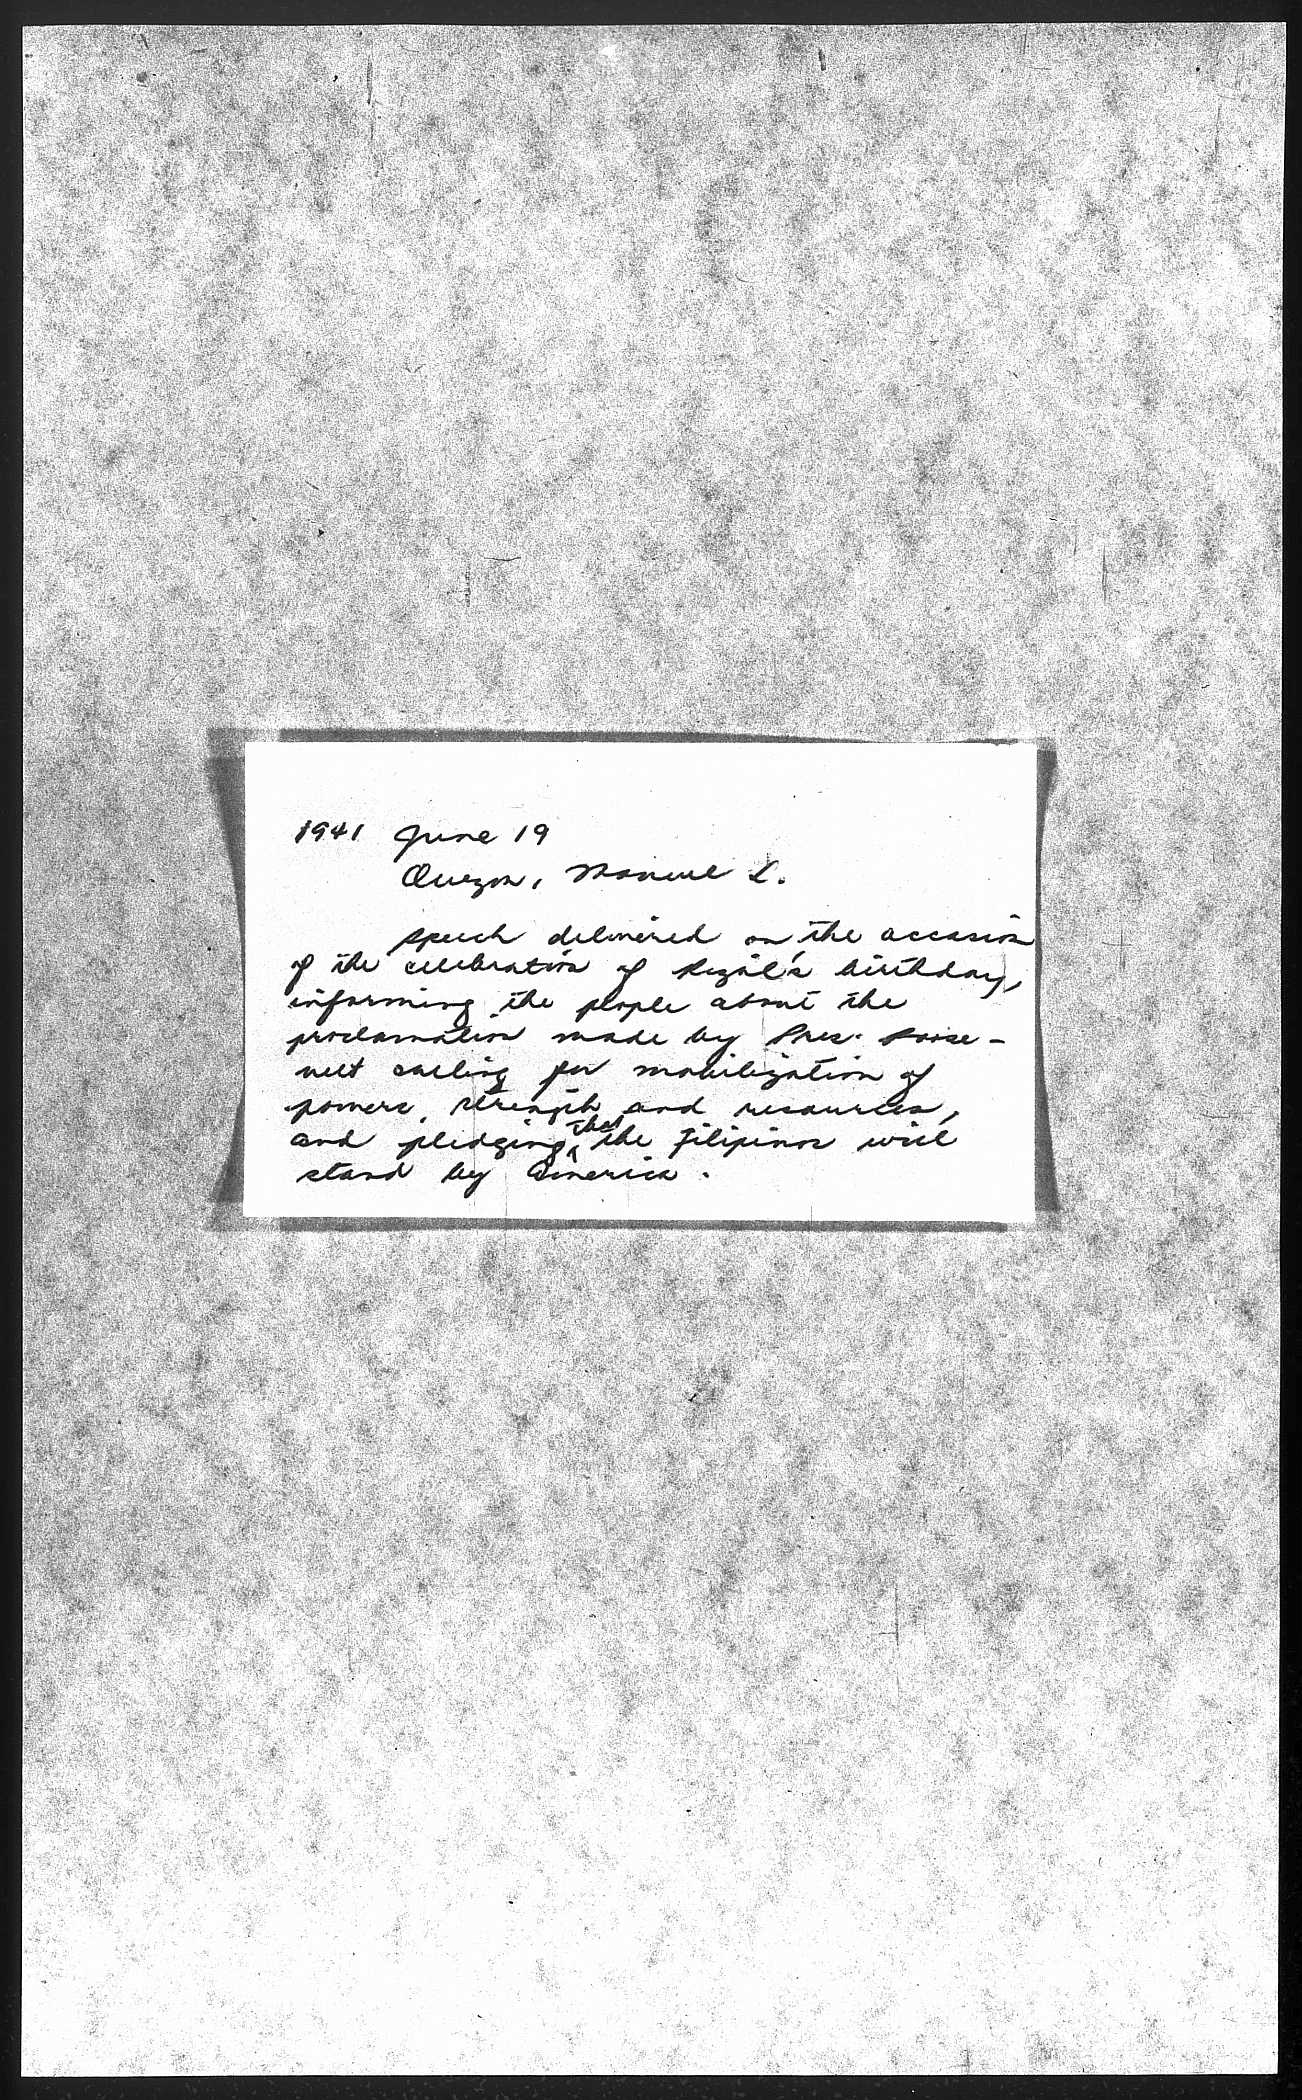 1941 June 19
Quezon, Manuel L.
Speech delivered on the occasion
of the celebration of Rizal's birthday,
informing the people about the
proclamation made by Pres. Roose-
velt calling for mobilization of
powers, strength and resources,
and pledging that the Filipinos will
stand by America.